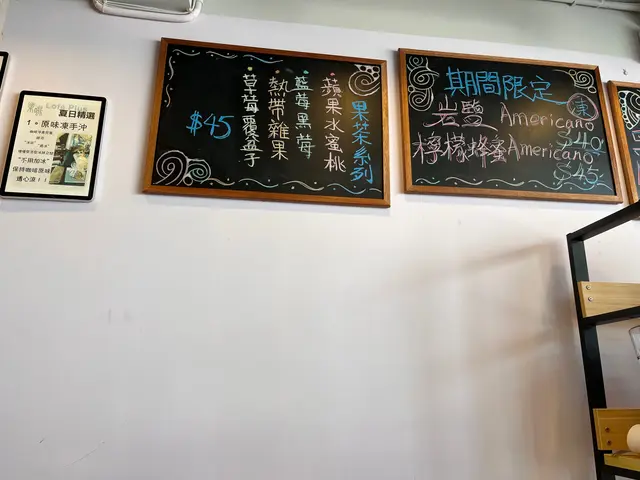 Cafe Plus
夏日精選
1。原味凍手沖
"不用加冰"
保持咖啡原味
透心涼!!
果茶系列
・蘋果水蜜桃
・藍莓黑莓
・熱帶雜果
・草莓覆盆子
$45
期間限定
凍
岩鹽 Americano
$40
檸檬蜂蜜 Americano
$45